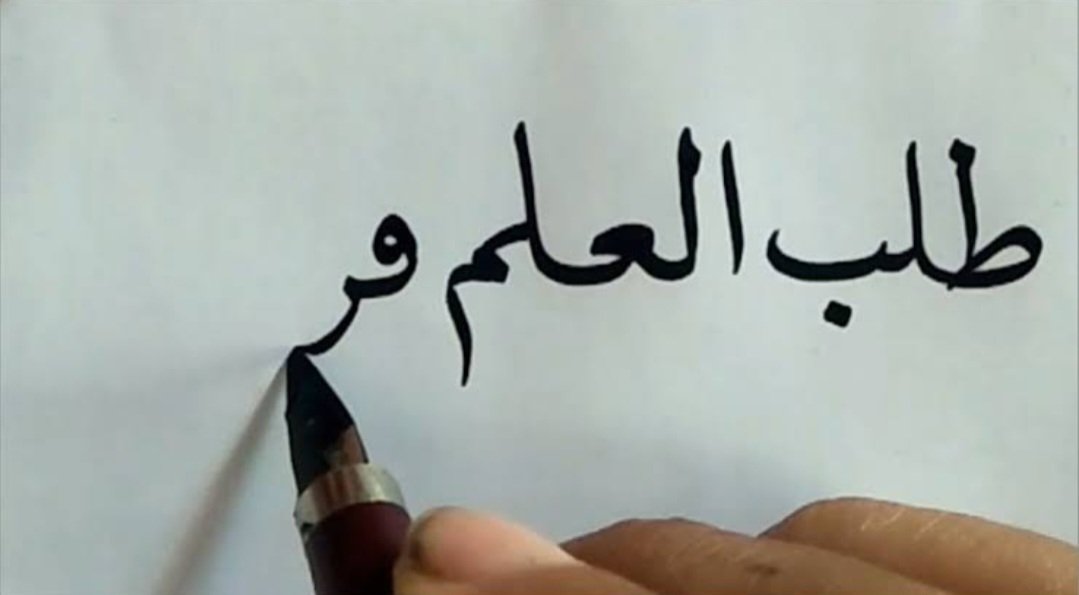 طلب العلم فر